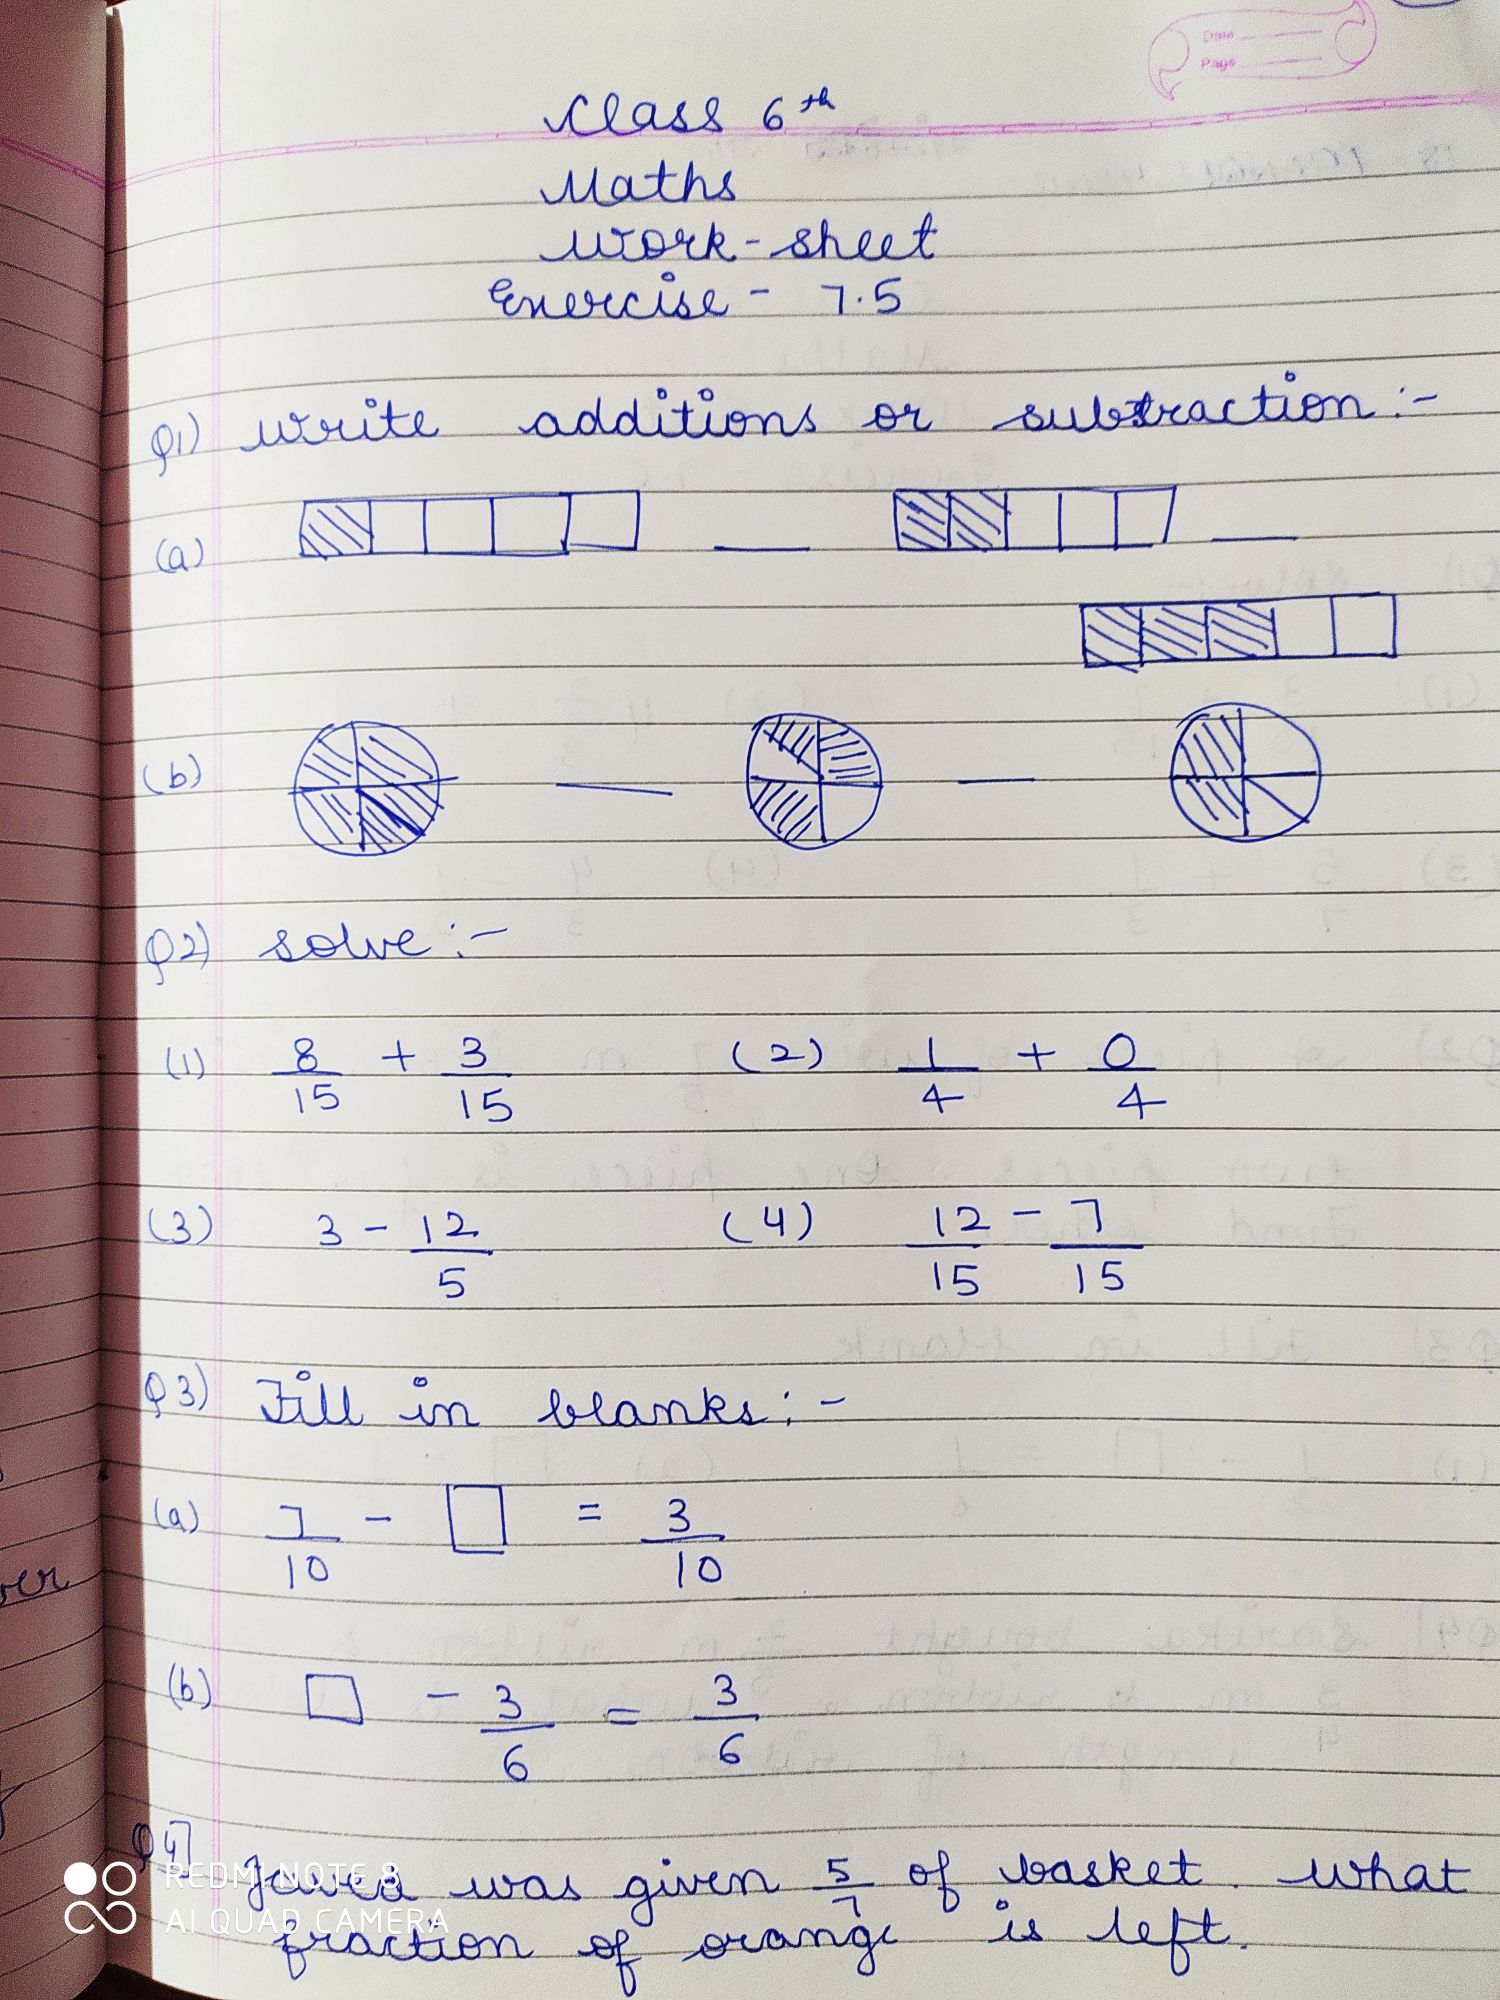 Date
Page
Class 6th
Maths
Work-sheet
Exercise - 7.5
Q1) Write additions or subtraction:-
(a) __ __
(b) __ __
Q2) Solve:-
(1) 8/15 + 3/15 (2) 1/4 + 0/4
(3) 3 - 12/5 (4) 12/15 - 7/15
Q3) Fill in blanks:-
(a) 7/10 - □ = 3/10
(b) □ - 3/6 = 3/6
Q4] Javed was given 5/7 of basket. What
fraction of orange is left.
REDMI NOTE 8
AI QUAD CAMERA